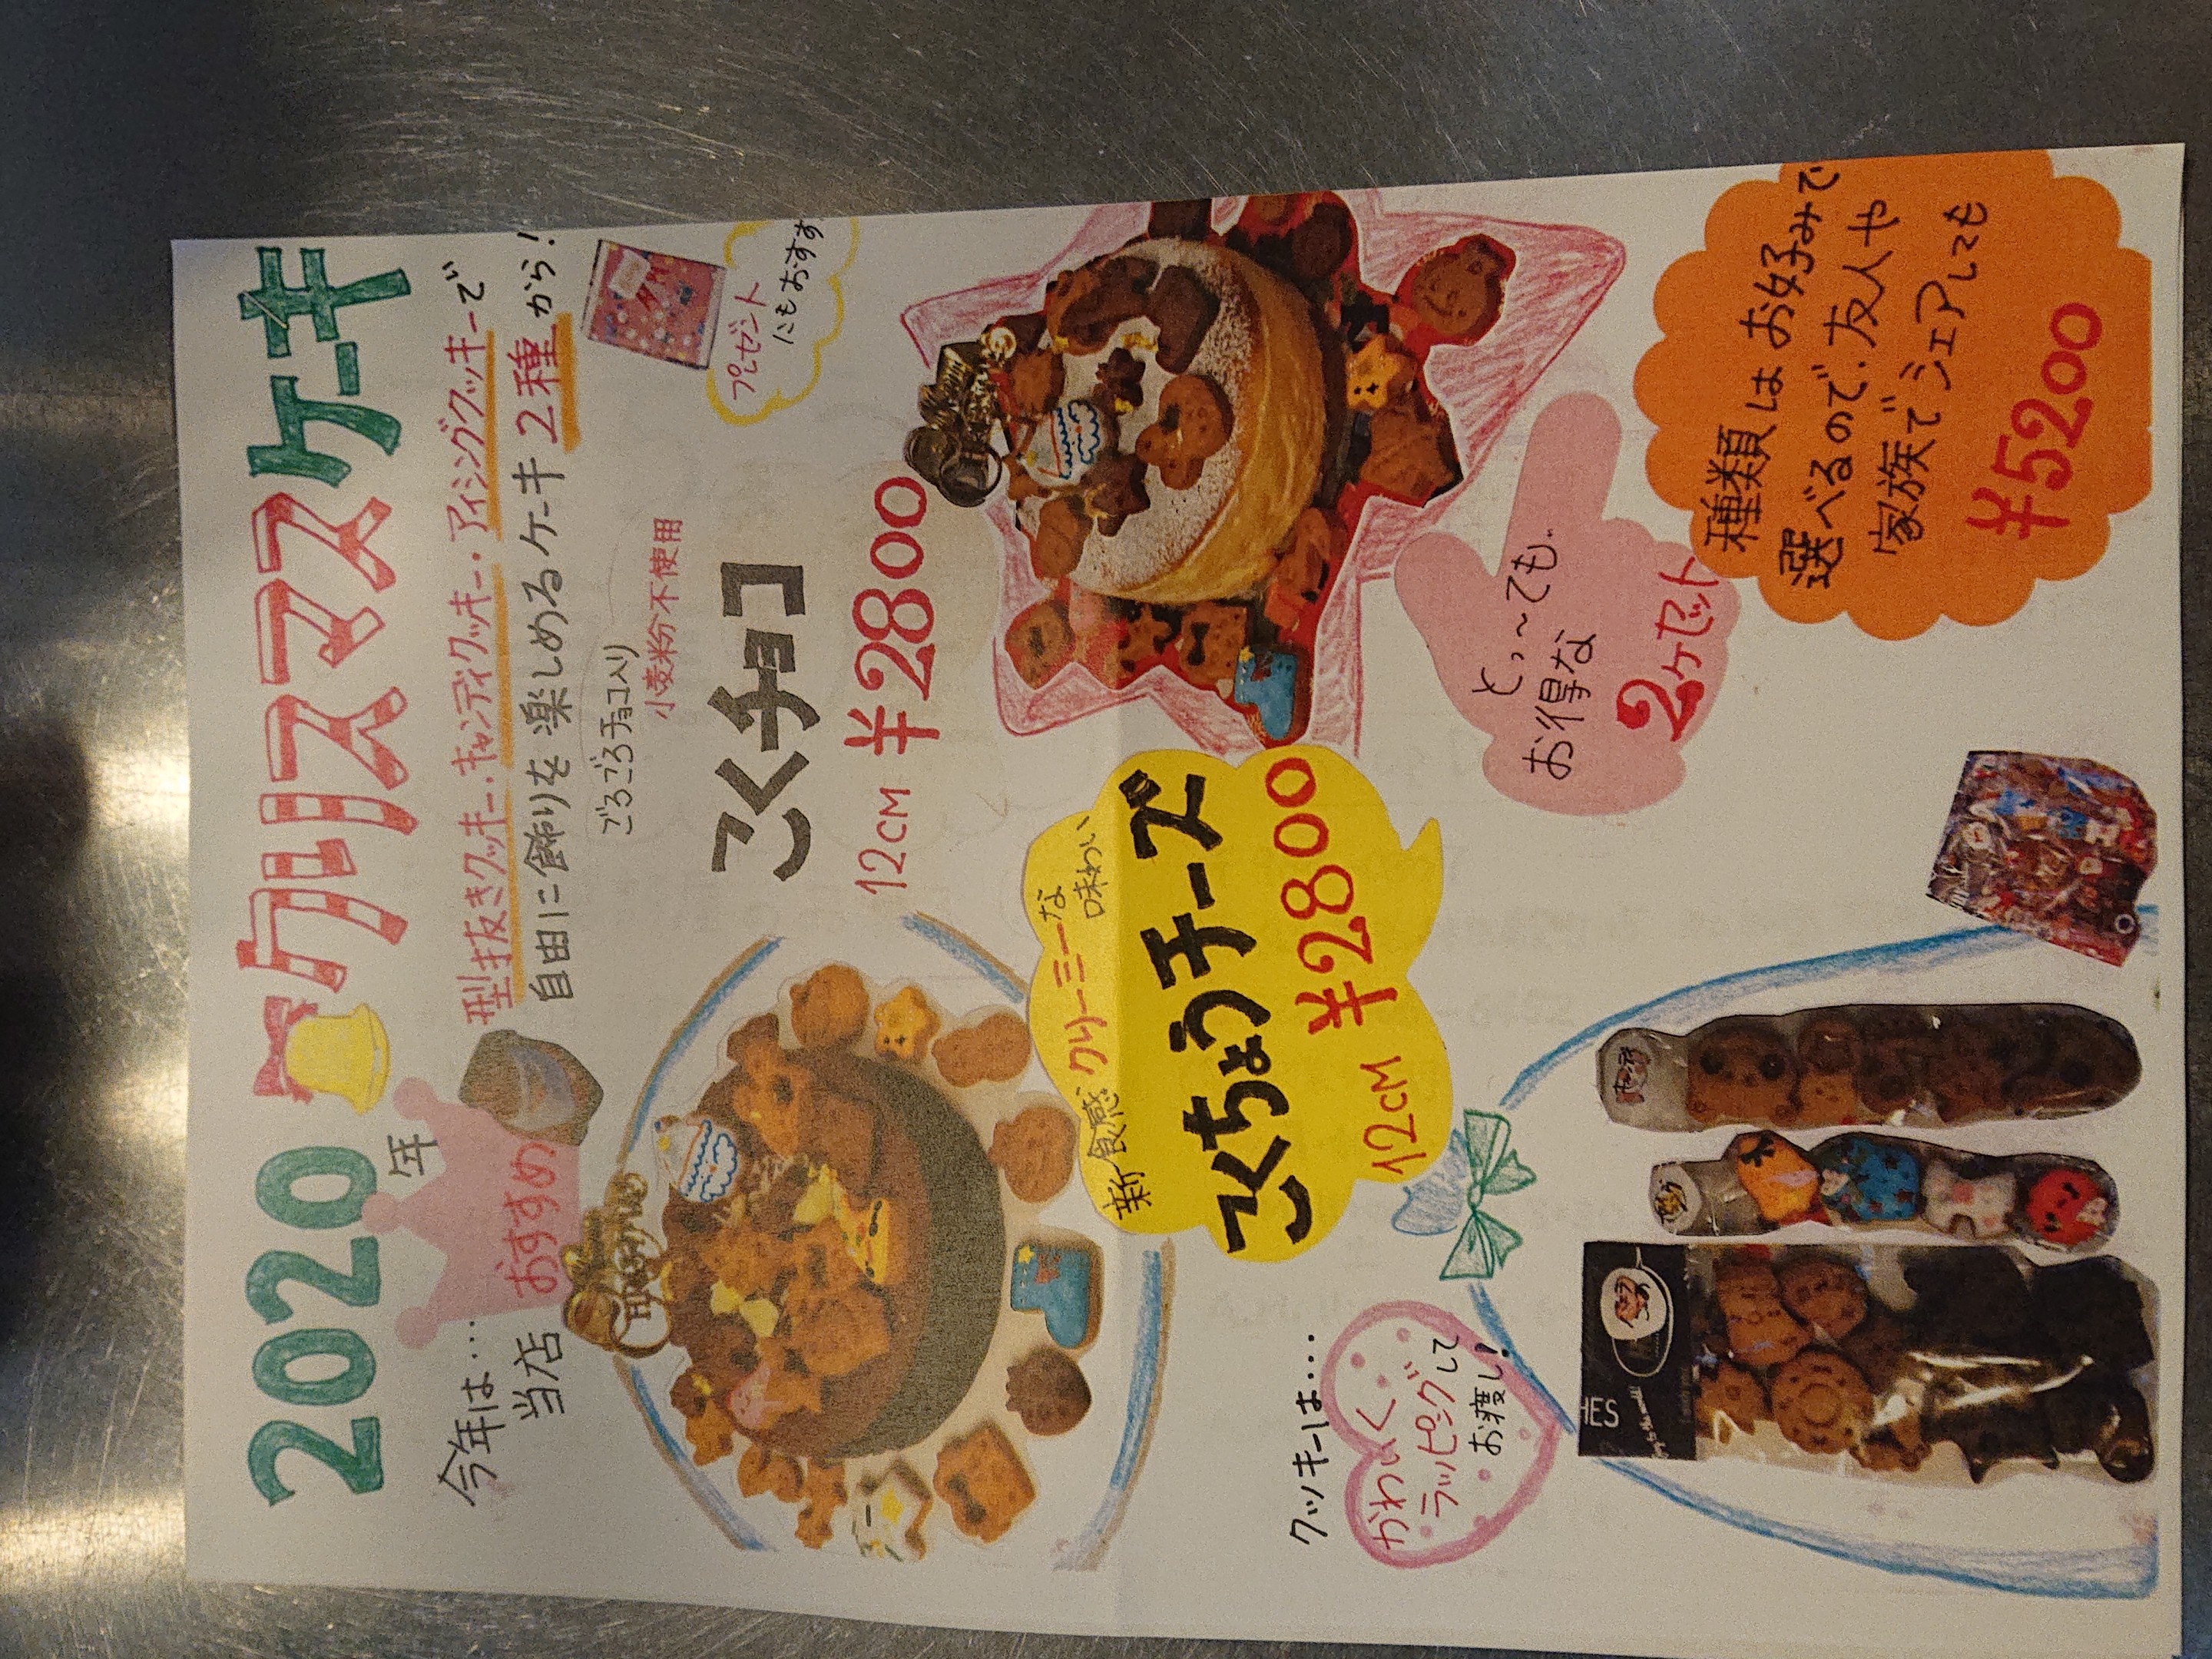 2020年クリスマスケーキ
今年は…
当店
おすすめ
型抜きクッキー・キャンディクッキー・アイシングクッキーで
自由に飾りを楽しめるケーキ2種から!
ごろごろチョコ入り
小麦粉分不使用
こくチョコ
12cm ¥2800
プレゼント
にもおすす
新食感クリーミーな
味わい
こくちょうチーズ
¥2800
12cm
とっ〜ても
お得な
2ヶセット
種類はお好みで
選べるので、友人や
家族でシェアしても
¥5200
クッキーは…
かわいく
ラッピングして
お渡し!